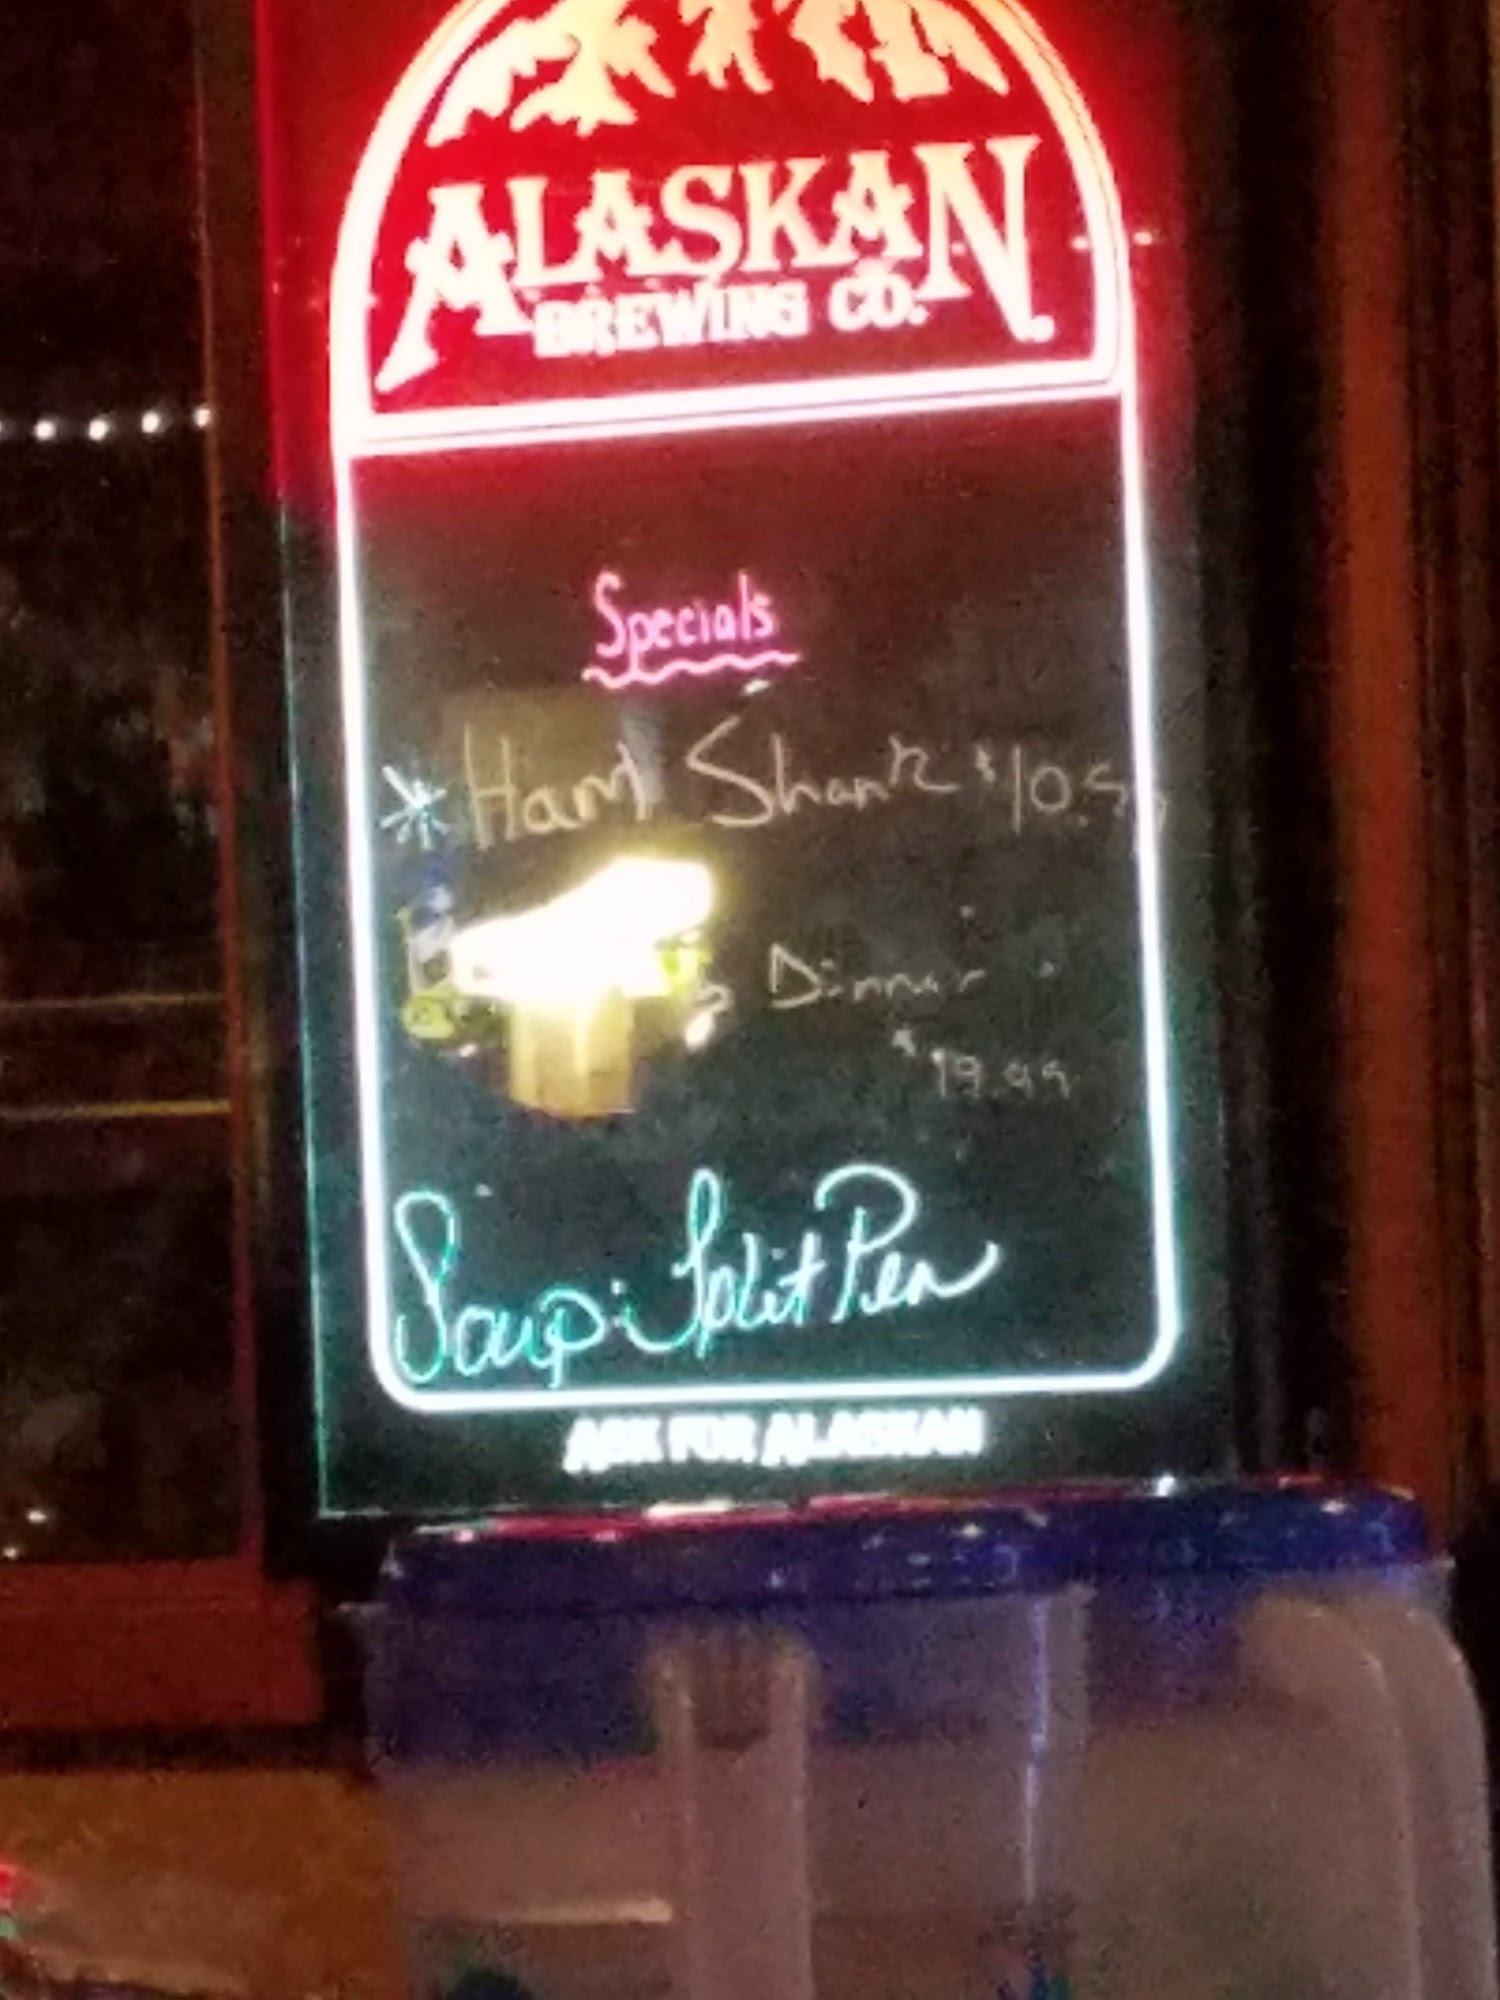 ALASKAN
BREWING CO.
Specials
Ham Shank
Dinner
$19.99
Soup: Split Pea
ASK FOR ALASKAN